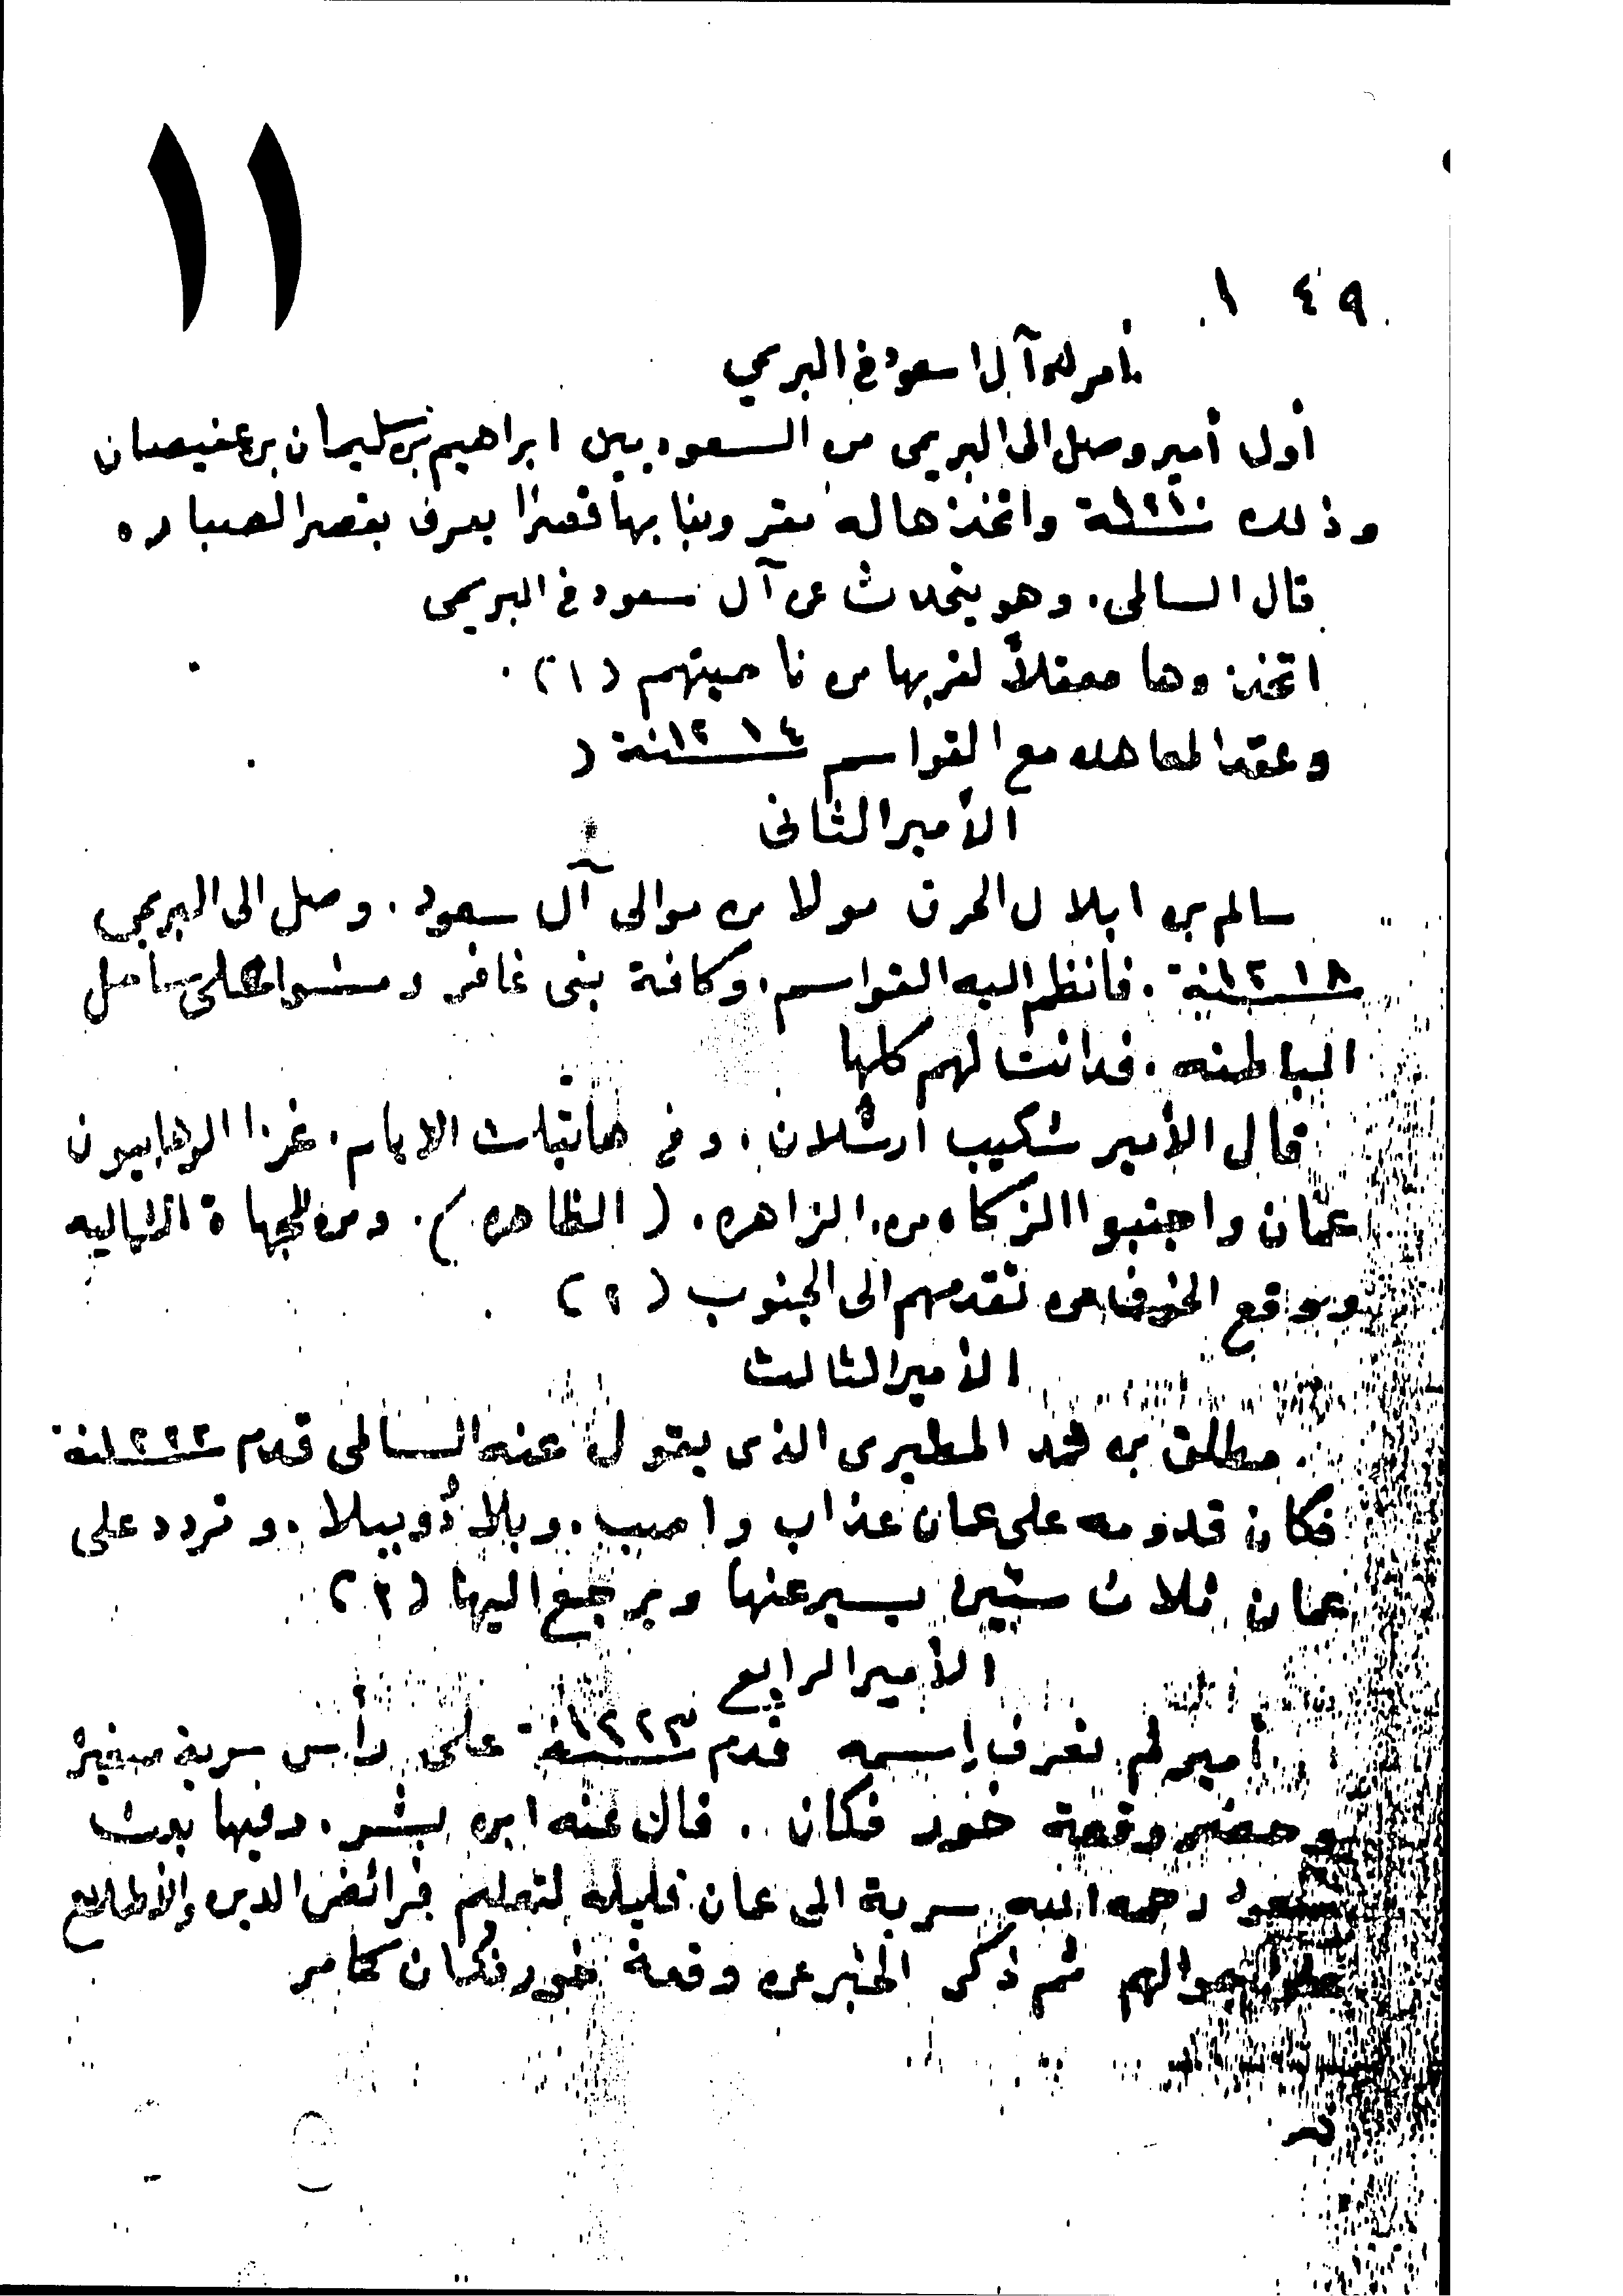 ١١
١٤٩
آل اسعود في البريمي
أول أمير وصل الى البريمي من السعوديين ابراهيم بن سليمان بن عفيصان
وذلك سنة واتخذ هاله مقر وبنا بها قصرا يعرف بقصر الصباره
قال السالمي. وهو يتحدث عن آل سعود في البريمي
اتخذوها معقلاً لقربها من ناحيتهم (١).
وعقد المعاهده مع القواسم سنة ١٢١٤ (
الأمير الثاني
سالم بن ابلال الحرق مولا من موالي آل سعود. وصل الى البريمي
سنة ١٢١٨. فأنظم اليه القواسم. وكافة بني غافر و ساحل
الباطنه. فدانت لهم كلها
قال الأمير شكيب أرسلان. وفي هاتبلت الامام. غزا الوهابيون
عمّان واجتبوا الزكاه من. الزاهره. (الظاهره). ومن الجهاة الشماليه
ووقع الخوف من تقدمهم الى الجنوب (٢)
الأمير الثالث
مطلق بن محمد المطيري الذي يقول عنه السالمي قدم سنة ١٢٢٢
فكان قدومه على عمان عذاب واصب. وبلاءً وبيلا. وتردد على
عمان ثلاث سنين يسير عنها ويرجع اليها (٣)
الأمير الرابع
أمير لم نعرف إسمه قدم سنة ١٢٢٣ على رأس سرية صغيرة
وحضر وقعة خور فكان.. قال عنه ابن بشر. وفيها بعث
سعود رحمه الله سرية الى عمان قليله لتعليم فرائض الدين والأطلاع
على احوالهم ثم ذكر الخبر عن وقعة خور فكان كما مر